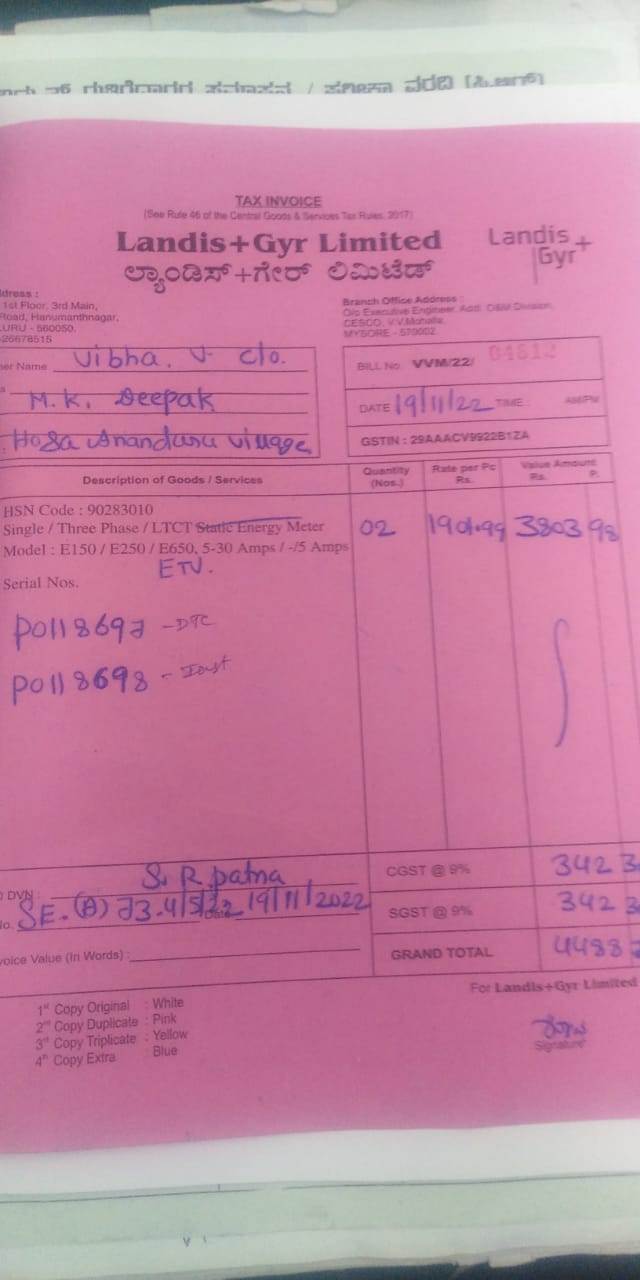 TAX INVOICE
(See Rule 46 of the Central Goods & Services Tax Rules, 2017)
Landis+Gyr Limited
Landis+
Gyr
ಲ್ಯಾಂಡಿಸ್+ಗೇರ್ ಲಿಮಿಟೆಡ್
dress :
1st Floor, 3rd Main,
Road, Hanumanthnagar,
URU - 560050.
26678515
Branch Office Address :
O/o Executive Engineer, Add. O&M Division,
CESCO, V.V.Mohalla,
MYSORE - 570002
er Name Vibha. V c/o.
M.K. Deepak
Hosa Ananduru Village
BILL No. VVM/22/ 04612
DATE 19/11/22 TIME : AM/PM
GSTIN : 29AAACV9922B1ZA
Description of Goods / Services
Quantity (Nos.)
Rate per Pc Rs.
Value Amount Rs. P.
HSN Code : 90283010
Single / Three Phase / LTCT Static Energy Meter
02 1901.99 3803 98
Model : E150 / E250 / E650, 5-30 Amps / -/5 Amps
ETV.
Serial Nos.
P0118697 - DTC
P0118698
CGST @ 9% 342
DVN : S. R. patna
SGST @ 9% 342
No. SE. (A) 73.4/5/22 Date 19/11/2022
GRAND TOTAL 4488
voice Value (In Words) :
For Landis+Gyr Limited
1st Copy Original : White
2nd Copy Duplicate : Pink
3rd Copy Triplicate : Yellow
4th Copy Extra : Blue
Signature